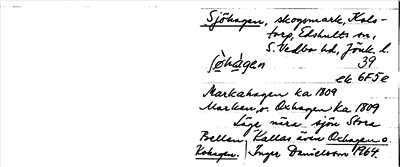 Sjöhagen, skogsmark, Kols-
torp, Edshults sn,
S. Vedbo hd, Jönk. l.
sö̀hàgen 39
ek 6F5e
Markahagen ka 1809
Marken, o. Oxhagen ka 1809
Läge nära sjön Stora
Bellen Kallas även Oxhagen o.
Kohagen. Inger Danielsson 1964